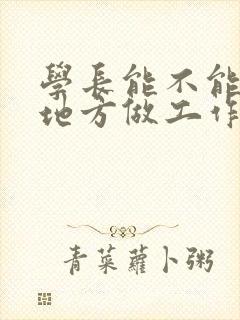 學長能不能
地方做工作
青菜蘿卜粥